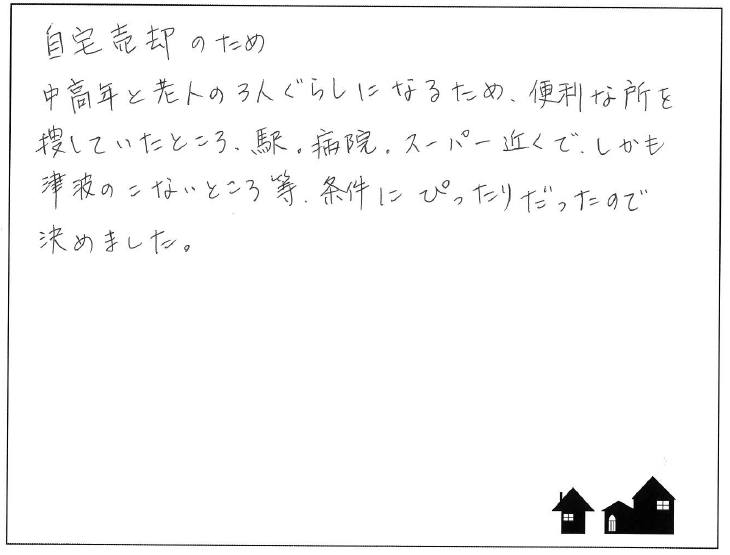 自宅売却のため
中高年と老人の3人ぐらしになるため、便利な所を
捜していたところ、駅。病院。スーパー近くで、しかも
津波のこないところ等、条件にぴったりだったので
決めました。